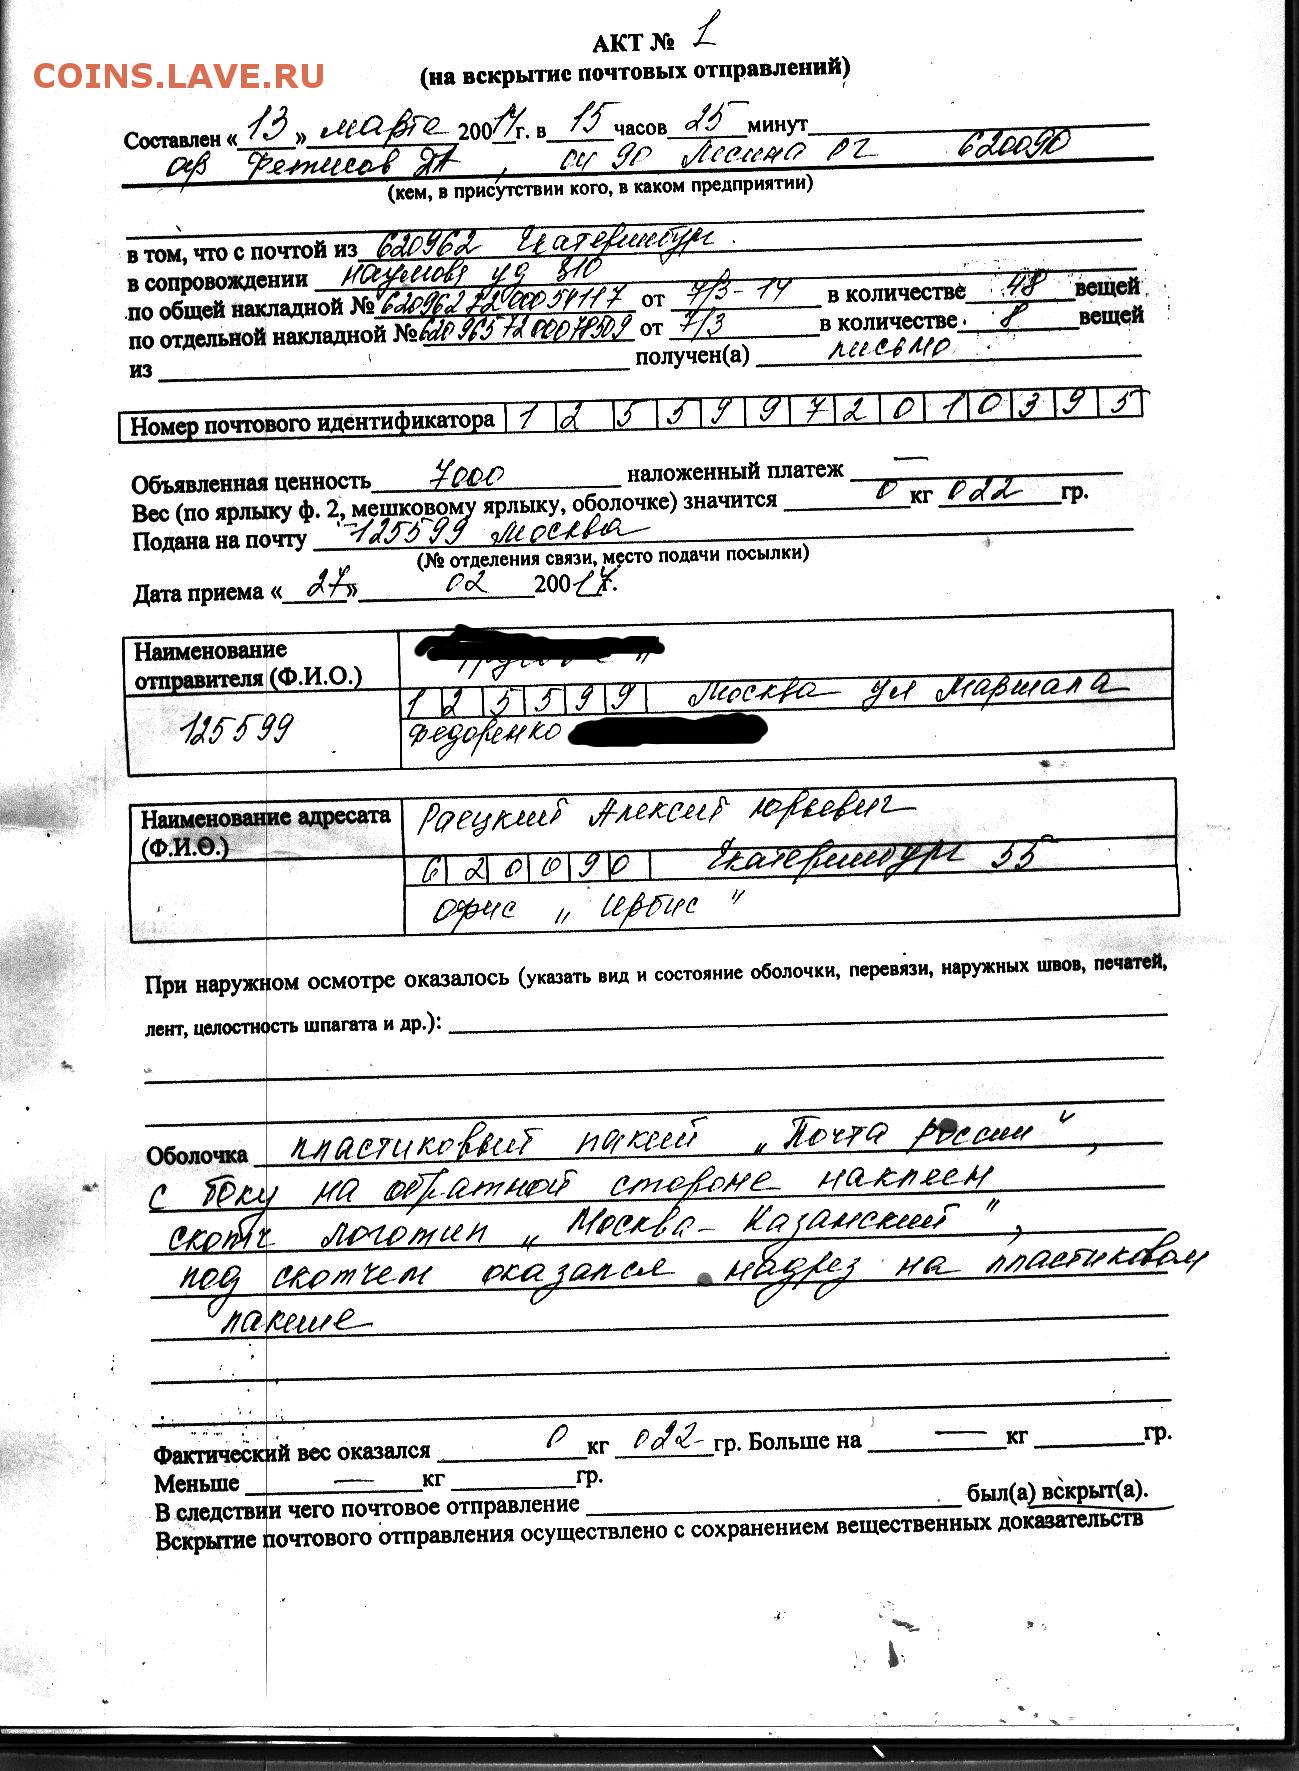 АКТ № 1
COINS.LAVE.RU
(на вскрытие почтовых отправлений)
Составлен « 13 » марта 20017г. в 15 часов 25 минут
Фетисов ДА, 90 ОГ 620090
(кем, в присутствии кого, в каком предприятии)
в том, что с почтой из 620962 Екатеринбург
в сопровождении
по общей накладной № от 7/3-17 в количестве 48 вещей
по отдельной накладной № от 7/3 в количестве 8 вещей
из получен(а) письмо
Номер почтового идентификатора 1 2 5 5 9 9 7 2 0 1 0 3 9 5
Объявленная ценность 7000 наложенный платеж —
Вес (по ярлыку ф. 2, мешковому ярлыку, оболочке) значится 0 кг 022 гр.
Подана на почту 125599 Москва
(№ отделения связи, место подачи посылки)
Дата приема « 27 » 02 20017г.
Наименование
отправителя (Ф.И.О.)
1 2 5 5 9 9 Москва ул Маршала
125599
Федоренко
Наименование адресата
(Ф.И.О.)
Раецкий Алексей Юрьевич
6 2 0 0 9 0 Екатеринбург 55
офис „ Ирбис "
При наружном осмотре оказалось (указать вид и состояние оболочки, перевязи, наружных швов, печатей,
лент, целостность шпагата и др.):
Оболочка пластиковый пакет „Почта россии",
с боку на обратной стороне наклеен
скотч логотип „ Москва-Казанский",
под скотчем оказался надрез на пластиковом
пакете
Фактический вес оказался 0 кг 022 гр. Больше на — кг гр.
Меньше — кг гр.
В следствии чего почтовое отправление был(а) вскрыт(а).
Вскрытие почтового отправления осуществлено с сохранением вещественных доказательств